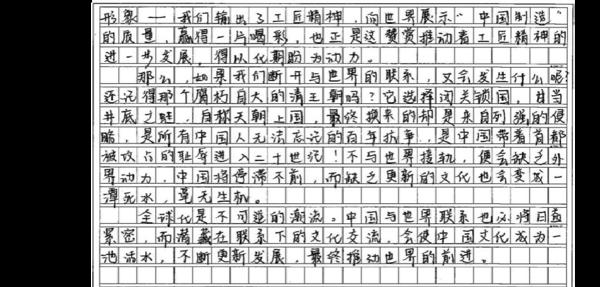 形象——我们输出了工匠精神，向世界展示“中国制造”
的质量，赢得一片喝彩，也正是这赞赏推动着工匠精神的
进一步发展，得以化期盼为动力。
那么，如果我们断开与世界的联系，又会发生什么呢？
还记得那个腐朽自大的清王朝吗？它选择闭关锁国，甘当
井底之蛙，自称天朝上国，最终换来的却是来自列强的侵
略，是所有中国人无法忘记的百年抗争，是中国带着首都
被攻占的耻辱进入二十世纪！不与世界接轨，便会缺乏外
界动力，中国将停滞不前，而缺乏更新的文化也会变成一
潭死水，毫无生机。
全球化是不可逆的潮流。中国与世界联系也必将日益
紧密，而潜藏在联系下的文化交流，会使中国文化成为一
池活水，不断更新发展，最终推动世界的前进。